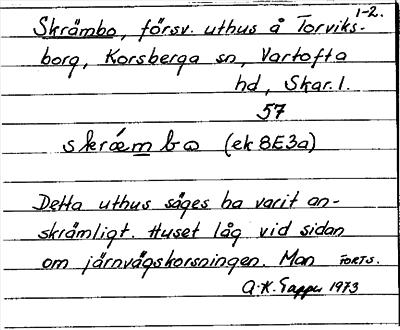 1-2.
Skrämbo, försv. uthus å Torviks-
borg, Korsberga sn, Vartofta
hd, Skar. l.
57
skræ´mbɷ (ek 8E3a)
Detta uthus säges ha varit an-
skrämligt. Huset låg vid sidan
om järnvägskorsningen. Man FORTS.
A.-K. 1973